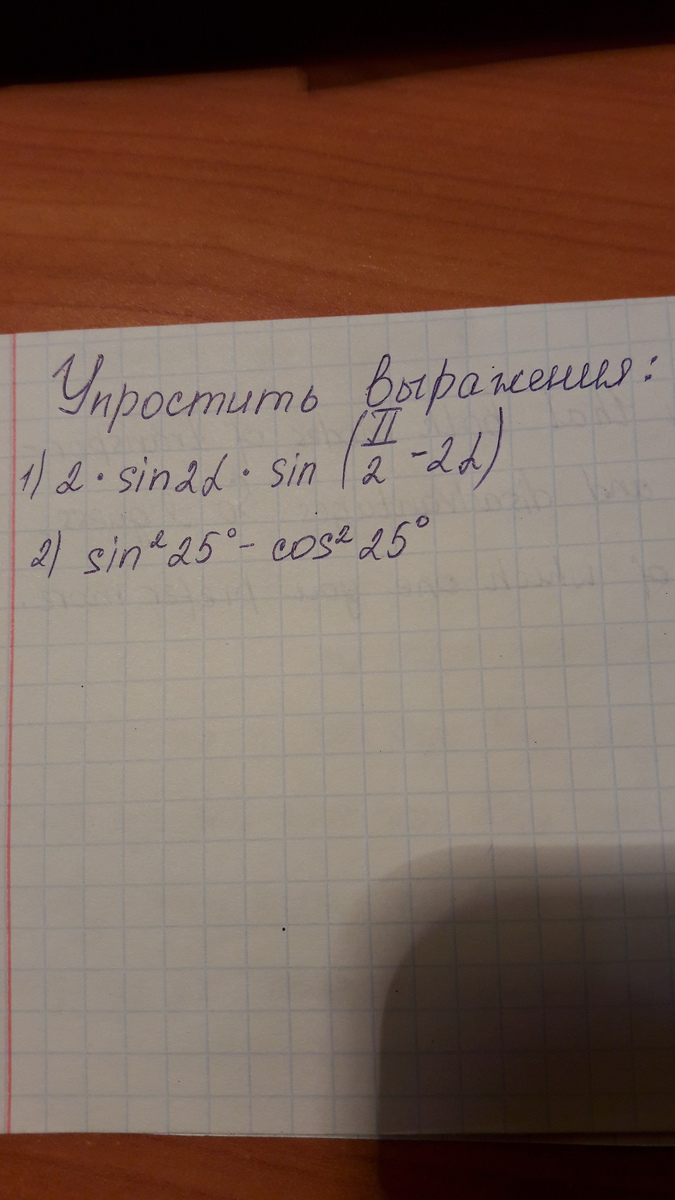 Упростить выражения:
1) 2 · sin2α · sin (π/2 - 2α)
2) sin² 25° - cos² 25°